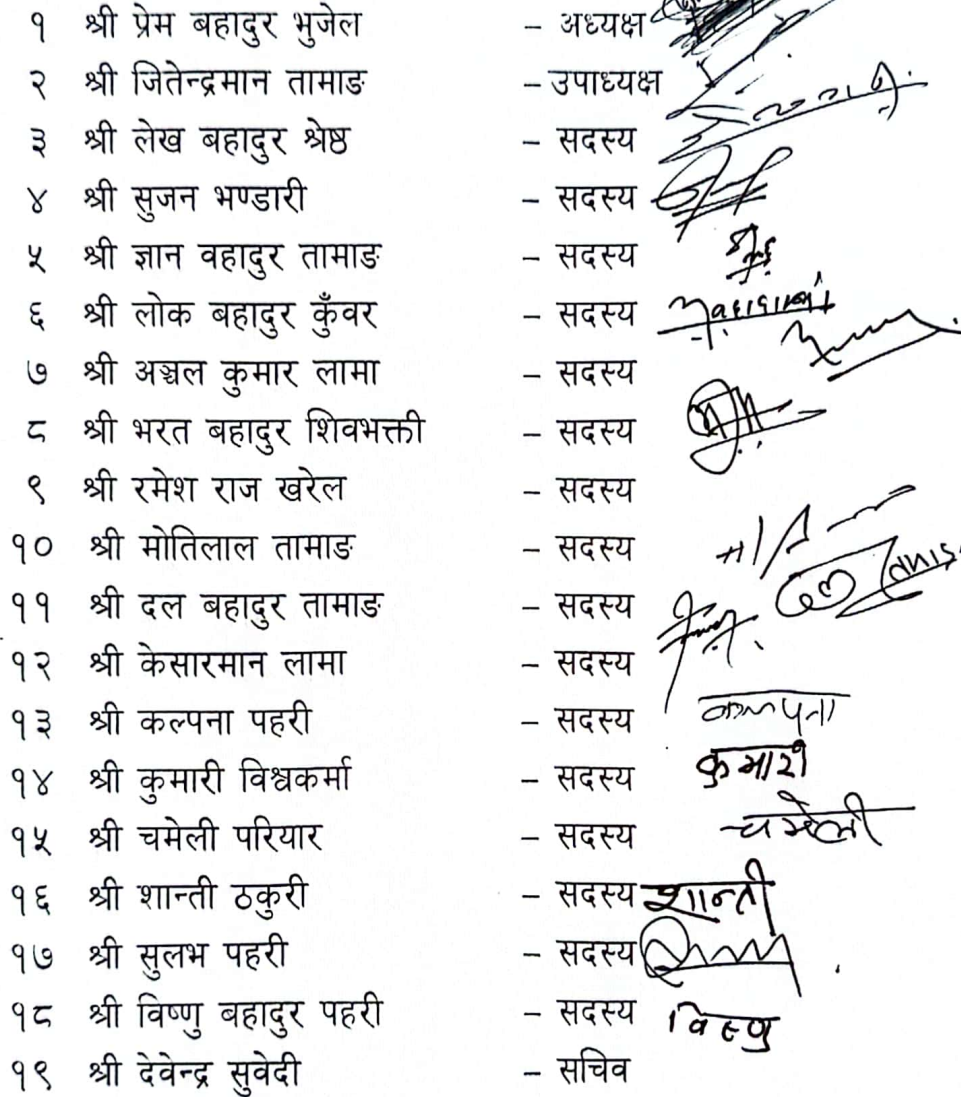 १ श्री प्रेम बहादुर भुजेल - अध्यक्ष
२ श्री जितेन्द्रमान तामाङ - उपाध्यक्ष
३ श्री लेख बहादुर श्रेष्ठ - सदस्य
४ श्री सुजन भण्डारी - सदस्य
५ श्री ज्ञान वहादुर तामाङ - सदस्य
६ श्री लोक बहादुर कुँवर - सदस्य
७ श्री अञ्चल कुमार लामा - सदस्य
८ श्री भरत बहादुर शिवभक्ती - सदस्य
९ श्री रमेश राज खरेल - सदस्य
१० श्री मोतिलाल तामाङ - सदस्य
११ श्री दल बहादुर तामाङ - सदस्य
१२ श्री केसारमान लामा - सदस्य
१३ श्री कल्पना पहरी - सदस्य कल्पना
१४ श्री कुमारी विश्वकर्मा - सदस्य कुमारी
१५ श्री चमेली परियार - सदस्य चमेली
१६ श्री शान्ती ठकुरी - सदस्य शान्ती
१७ श्री सुलभ पहरी - सदस्य
१८ श्री विष्णु बहादुर पहरी - सदस्य विष्णु
१९ श्री देवेन्द्र सुवेदी - सचिव